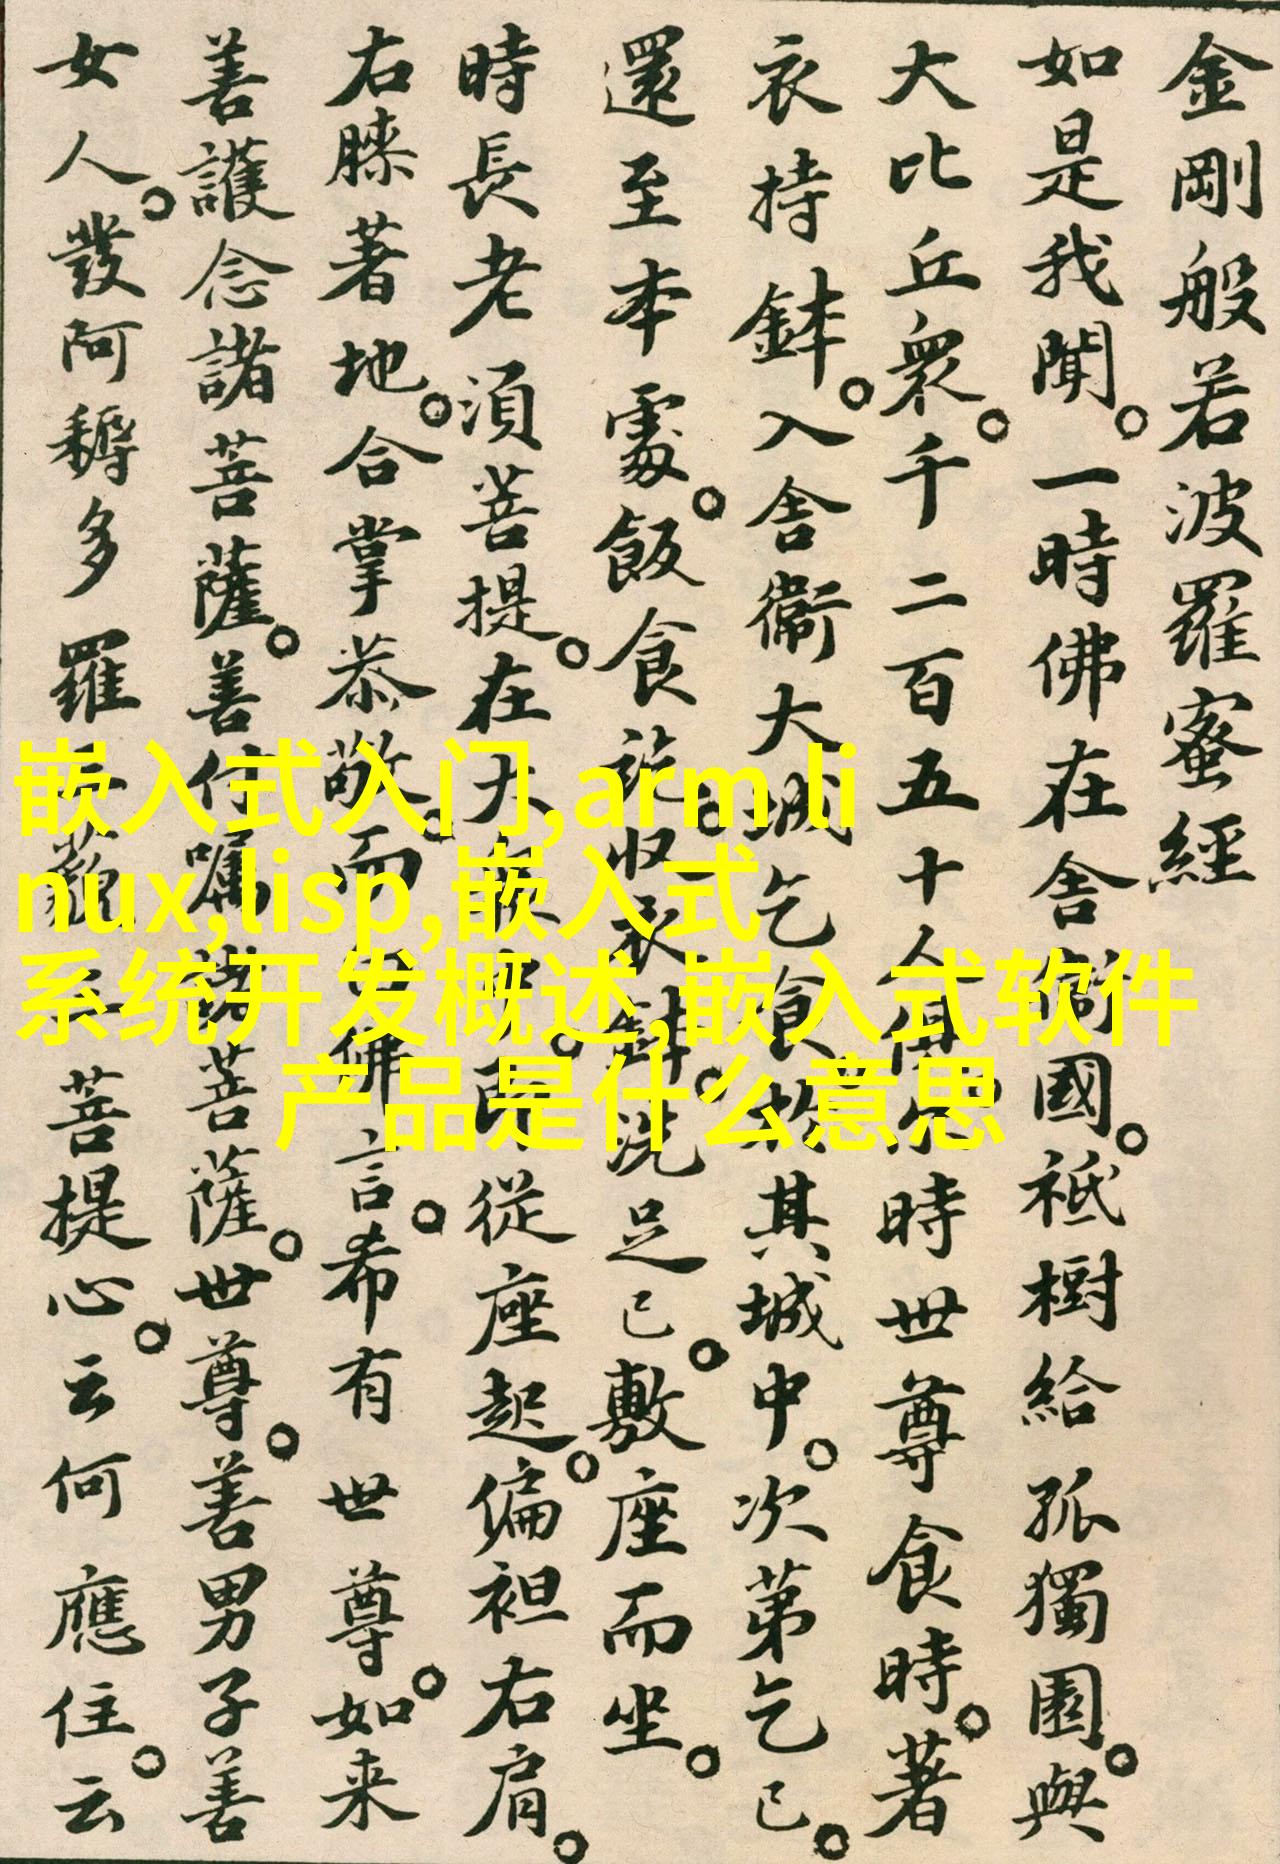 金剛般若波羅蜜經
如是我聞。一時佛在舍衞國。祇樹給孤獨園。與
大比丘衆。千二百五十人俱。尔時世尊食時。著
衣持鉢。入舍衞大城乞食於其城中。次第乞已。
還至本處。飯食訖。收衣鉢。洗足已。敷座而坐。
時長老湏菩提。在大衆中。即從座起。偏袒右肩。
右膝著地。合掌恭敬。而白佛言。希有世尊。如来
善護念諸菩薩。善付嘱諸菩薩。世尊。善男子善
女人。發阿耨多羅三藐三菩提心。云何應住。云
嵌入式入门,arm li
nux,lisp,嵌入式
系统开发概述,嵌入式软件
产品是什么意思